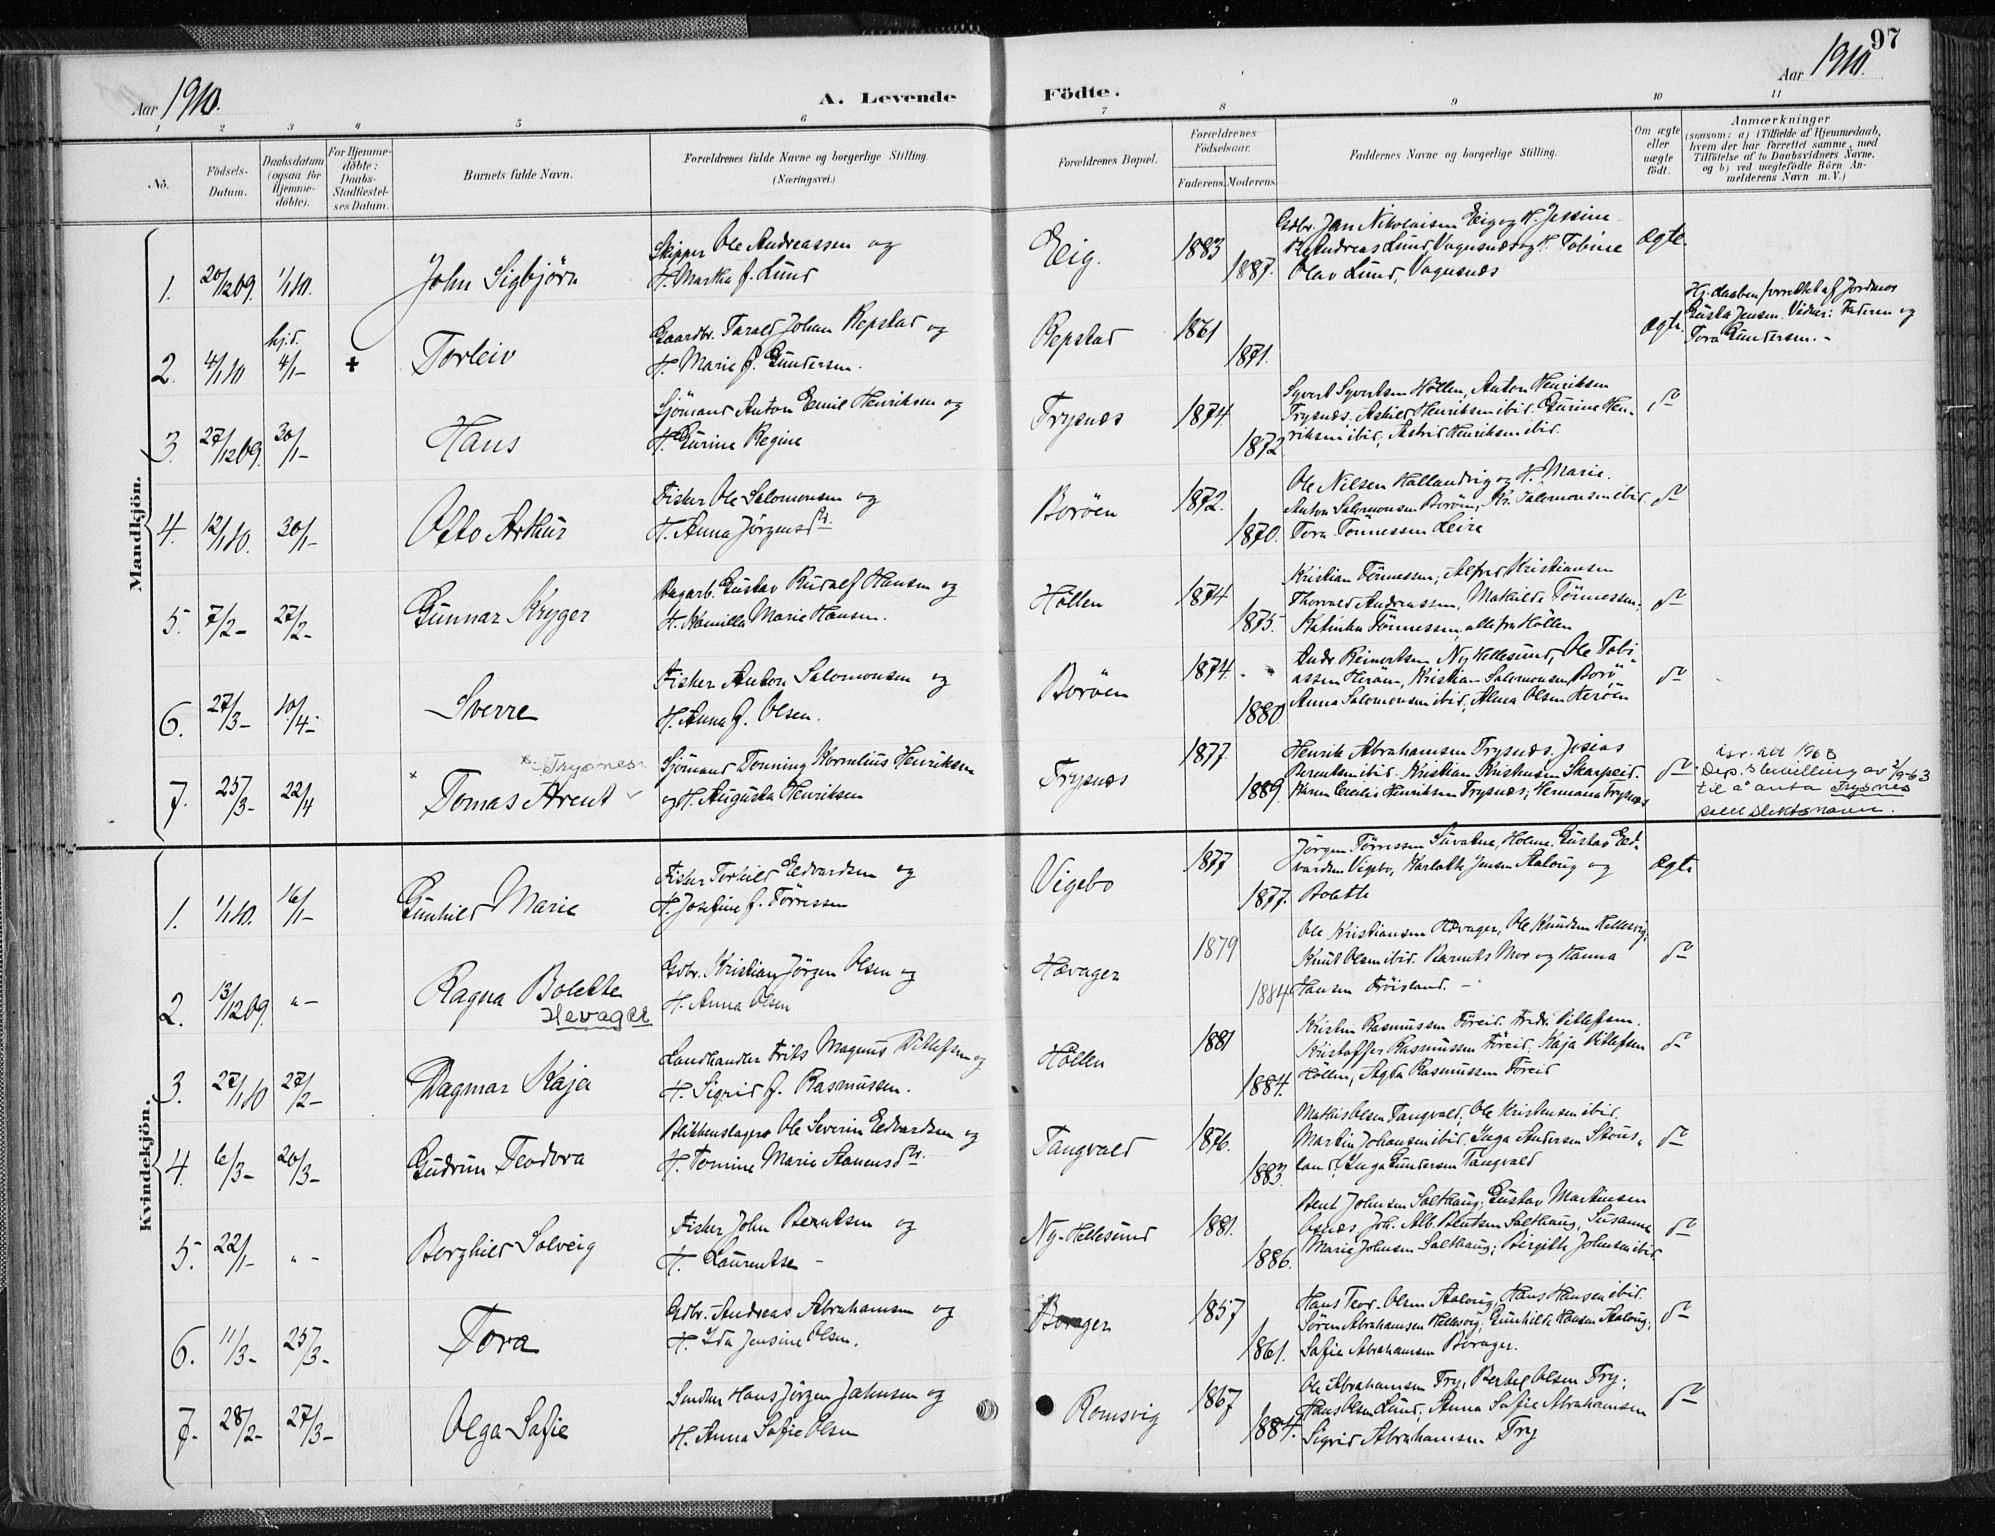 97
Aar 1910.
A. Levende Födte.
Aar 1910.
1 2 3 4 5 6 7 8 9 10 11
No.
Födsels-Datum.
Daabsdatum (ogsaa for Hjemme-döbte).
For Hjemme-döbte: Daabs-Stadfæstel-ses Datum.
Barnets fulde Navn.
Forældrenes fulde Navne og borgerlige Stilling.
(Næringsvei.)
Forældrenes Bopæl.
Forældrenes Födselsaar.
Faderens. Moderens.
Faddernes Navne og borgerlige Stilling.
Om ægte eller uægte födt.
Anmærkninger
(saasom: a) i Tilfælde af Hjemmedaab, hvem der har forrettet samme, med Tilföielse af to Daabsvidners Navne, og b) ved uægtefödte Börn An-melderens Navn m. V.)
Mandkjön.
1. 20/12 09. 1/1 10. John Sigbjörn
Skipper Ole Andreassen og
H. Martha f. Lund
Eig. 1883 1887.
Gdbr. Jan Nikolaisen Eig og H. Jessine
Andreas Lund, Vagesnæs og H. Tobine
Olav Lund, Vagesnæs
ægte.
2. 4/1 10 hjd. 4/1- + Torleiv
Gaardbr. Tarald Johan Repstad og
H. Marie f. Gundersen.
Repstad 1861 1871.
ægte.
Hj. daaben forrettet af Jordmor
Gusta Jensen. Vidner: Faderen og
Tora Gundersen.-
3. 27/12 09. 30/1- Hans
Sjömand Anton Emil Henriksen og
H. Gurine Regine
Trysnæs 1874. 1872
Syvert Syvertsen Höllen, Anton Henriksen
Trysnæs. Askild Henriksen ibid. Gurine Hen-
riksen ibid, Astrid Henriksen ibid.
do
4. 12/1 10. 30/1- Otto Arthur
Fisker Ole Salomonsen og
H. Anna Jörgensdtr.
Boröen 1872. 1870.
Ole Nilsen Hallandvig og H. Marie.
Anton Salomonsen Boröen, Kr. Salomonsen ibid.
Tora Tönnessen Leire
do
5. 7/2- 27/2- Gunnar Kryger
Dagarb. Gustav Rudolf Hansen og
H. Kamilla Marie Hansen.
Höllen 1874 1875.
Kristian Tönnessen, Alfred Kristiansen
Thorvald Andreassen, Mathilde Tönnessen.
Kathinka Tönnessen, alle fra Höllen
do
6. 27/3- 10/4- Sverre
Fisker Anton Salomonsen og
H. Anna f. Olsen.
Boröen 1874. 1880.
Andr. Reinertsen Ny Hellesund, Ole Tobi-
assen Heröen, Kristian Salomonsen Borö,
Anna Salomonsen ibid, Alma Olsen Heröen
do
7. 25/3- 22/4 × Tomas Arent × Trysnes
Sjömand Tönning Kornelius Henriksen
og H. Augusta Henriksen
Trysnæs 1877. 1889.
Henrik Abrahamsen Trysnæs. Josias
Berentsen ibid. Kristian Kristensen Skarpeid.
Karen Cecilie Henriksen Trysnæs; Hermana Trysnæs
do
Dep.s bevilling av 2/9-63
til å anta Trysnes
som slektsnavn.
Kvindekjön.
1. 1/1 10. 16/1- Gunhild Marie
Fisker Torkild Edvardsen og
H. Josefine f. Törressen
Vigebo 1877 1877.
Jörgen Törressen Stuvatne, Holme. Gustav Ed-
vardsen Vigebo, Karl Jensen Aalaug og
Bolette
ægte
2. 13/12 09. „- Ragna Bolette
Hevager
Gdbr. Kristian Jörgen Olsen og
H. Anna Olsen
Hævager 1879 1884
Ole Kristiansen Hævager, Ole Knudsen Hellesvig,
Knut Olsen ibid. Barnets Mor og Hanna
Hansen Fröisland. -
do
3. 27/1 10 27/2- Dagmar Kaja
Landhandler Frits Magnus Ditlefsen og
H. Sigrid f. Rasmussen.
Höllen 1881 1884.
Kristen Rasmussen Föreid. Fredr. Ditlefsen.
Kristoffer Rasmussen Föreid, Kaja Ditlefsen
Höllen, Agda Rasmussen Föreid
do
4. 6/3- 20/3- Gudrun Teodora
Blikkenslager Ole Severin Edvardsen og
H. Tomine Marie Aanensdtr.
Tangvald 1876. 1883.
Mathis Olsen Tangvald, Ole Kristensen ibid.
Martin Johansen ibid. Inga Andersen Stöus-
land, Inga Gundersen Tangvald
do
5. 22/1- „- Borghild Solveig
Fisker John Berntsen og
H. Laurentse -
Ny-Hellesund 1881. 1886.
Bent Johnsen Salthaug; Gustav Martinsen
Osnæs, Joh. Alb. Bentsen Salthaug, Susanne
Marie Johnsen Salthaug; Birgitte Johnsen ibid.
do
6. 11/3- 25/3- Tora
Gdbr. Andreas Abrahamsen og
H. Ida Jensine Olsen.
Borager 1857 1861.
Hans Teor. Olsen Aalaug, Hans Hansen ibid.
Sören Abrahamsen Hellesvig, Gunhilde Hansen Aalaug;
Safie Abrahamsen Borager.
do
7. 28/2- 27/3- Olga Safie
Hans Jörgen Jahnsen og
H. Anna Safie Olsen
Romsvig 1867 1884.
Ole Abrahamsen Try, Bertel Olsen Try;
Hans Olsen Lund, Anna Safie Abrahamsen
Sigrid Abrahamsen Try
do